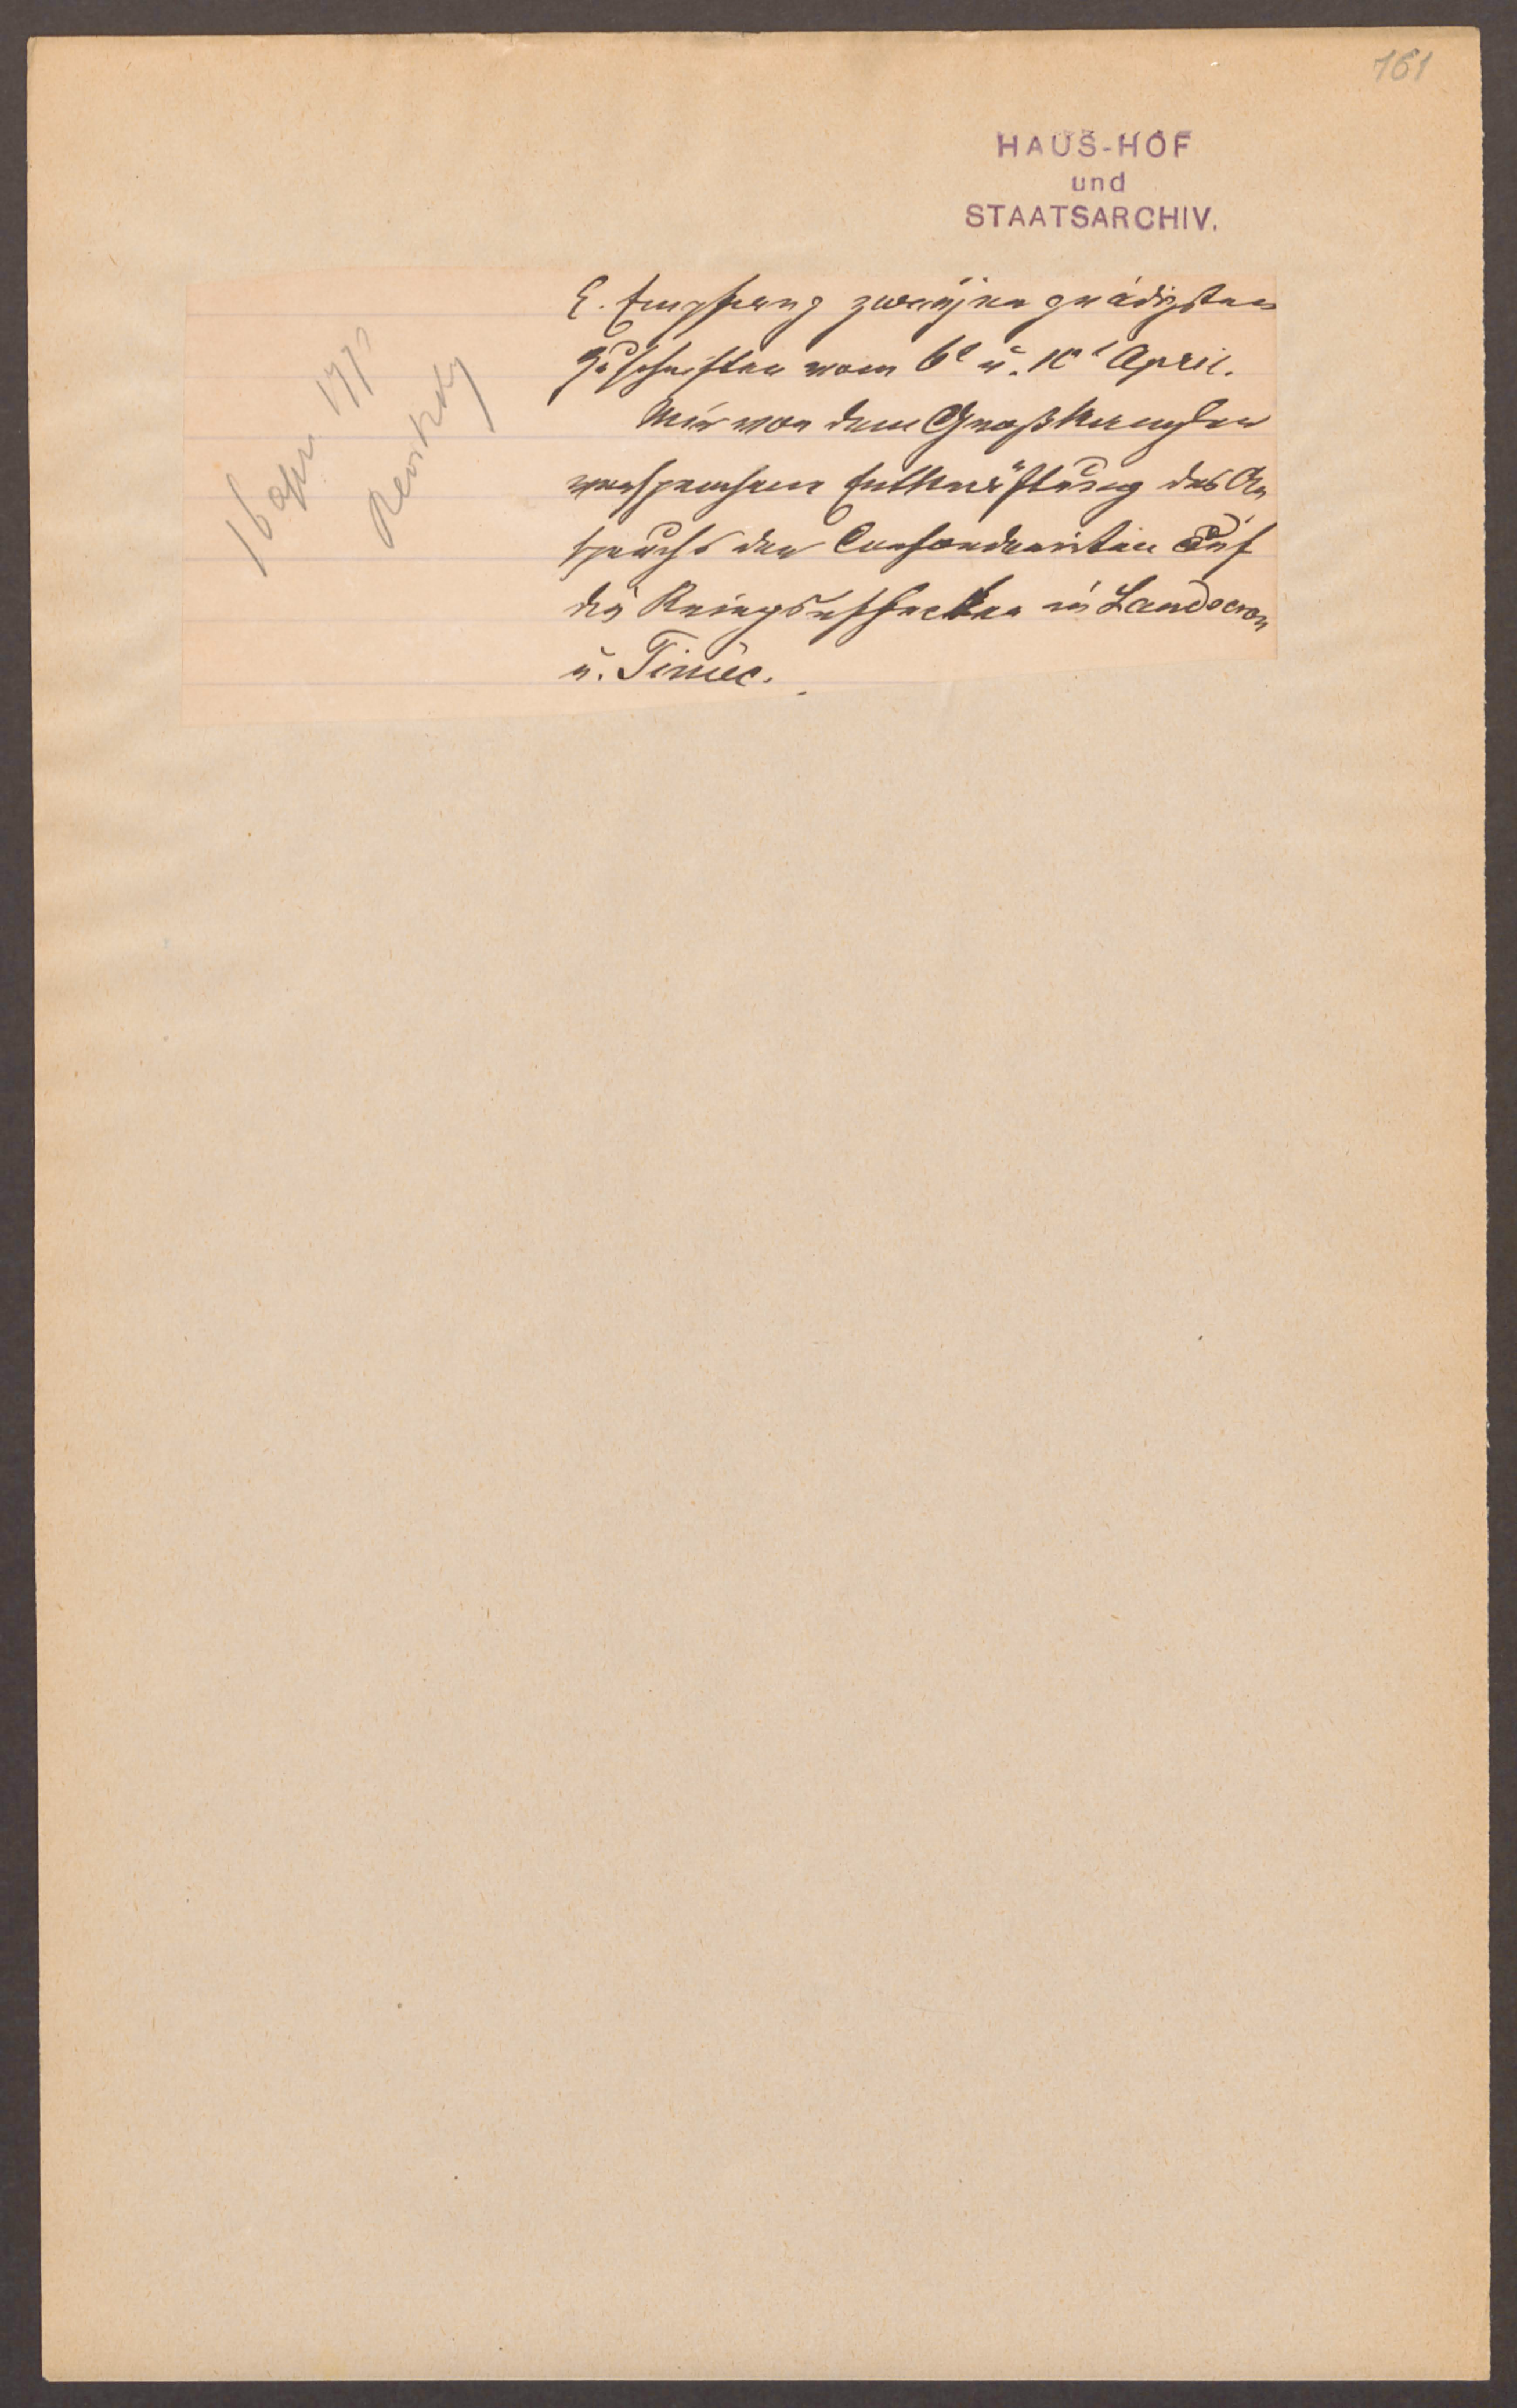 161
HAUS-HOF
und
STAATSARCHIV.
16 Apr 177
E. Empfang zweyen gnädigsten
Zuschriften vom 6t u. 10t April.
Mir von dem Großkanzler
versprochene Entkräftung des An
spruchs der Confoederirten auf
die Kriegseffecten in Landscron
u. Tiniec.